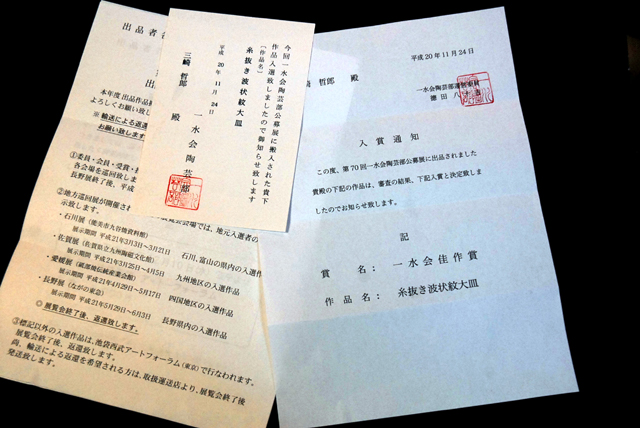 出品者各
本年度 出品作品
よろしくお願い致し
※ 輸送による返還
お願い致します
①委員・会員・受賞・
各会場を巡回致し
長野展終了後、平成
②地方巡回展が開催され
示致します。
展覧会会場では、地元入選者の
・石川展(能美市九谷焼資料館)
展示期間 平成21年3月3日~3月21日
石川、富山の県内の入選
・佐賀展(佐賀県立九州陶磁文化館)
展示期間 平成21年3月25日~4月5日
九州地区の入選作品
・愛媛展(砥部焼伝統産業会館)
展示期間 平成21年4月29日~5月17日
四国地区の入選作品
・長野展(ながの東急)
展示期間 平成21年5月29日~6月3日
長野県内の入選作品
◎ 展覧会終了後、返還致します。
③標記以外の入選作品は、池袋西武アートフォーラム(東京)で行なわれます。
展覧会終了後、返還致します。
尚、輸送による返還を希望される方は、取扱運送店より、展覧会終了後
発送致します。
今回一水会陶芸部公募展に搬入された貴下
作品入選致しましたので御知らせ致します
〔作品名〕
糸抜き波状紋大皿
平成20年11月24日
一水会陶芸部
三崎 哲郎 殿
平成20年11月24日
一水会陶芸部運営委員
徳田 八十吉
哲郎 殿
入賞通知
この度、第70回一水会陶芸部公募展に出品されました
貴殿の下記の作品は、審査の結果、下記入賞と決定致しま
したのでお知らせ致します。
記
賞 名: 一水会佳作賞
作品名: 糸抜き波状紋大皿